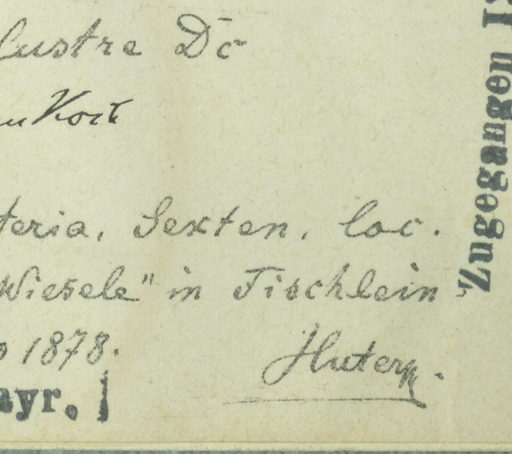 lustre Dc
Koch
teria, Sexten, loc.
Wiesele" in Fischlein-
1878.
Huter
ayr.
Zugegangen